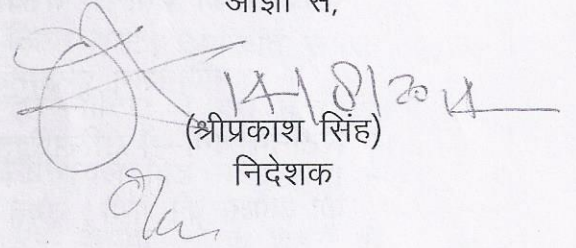 आज्ञा से,
14/8/2014
(श्रीप्रकाश सिंह)
निदेशक